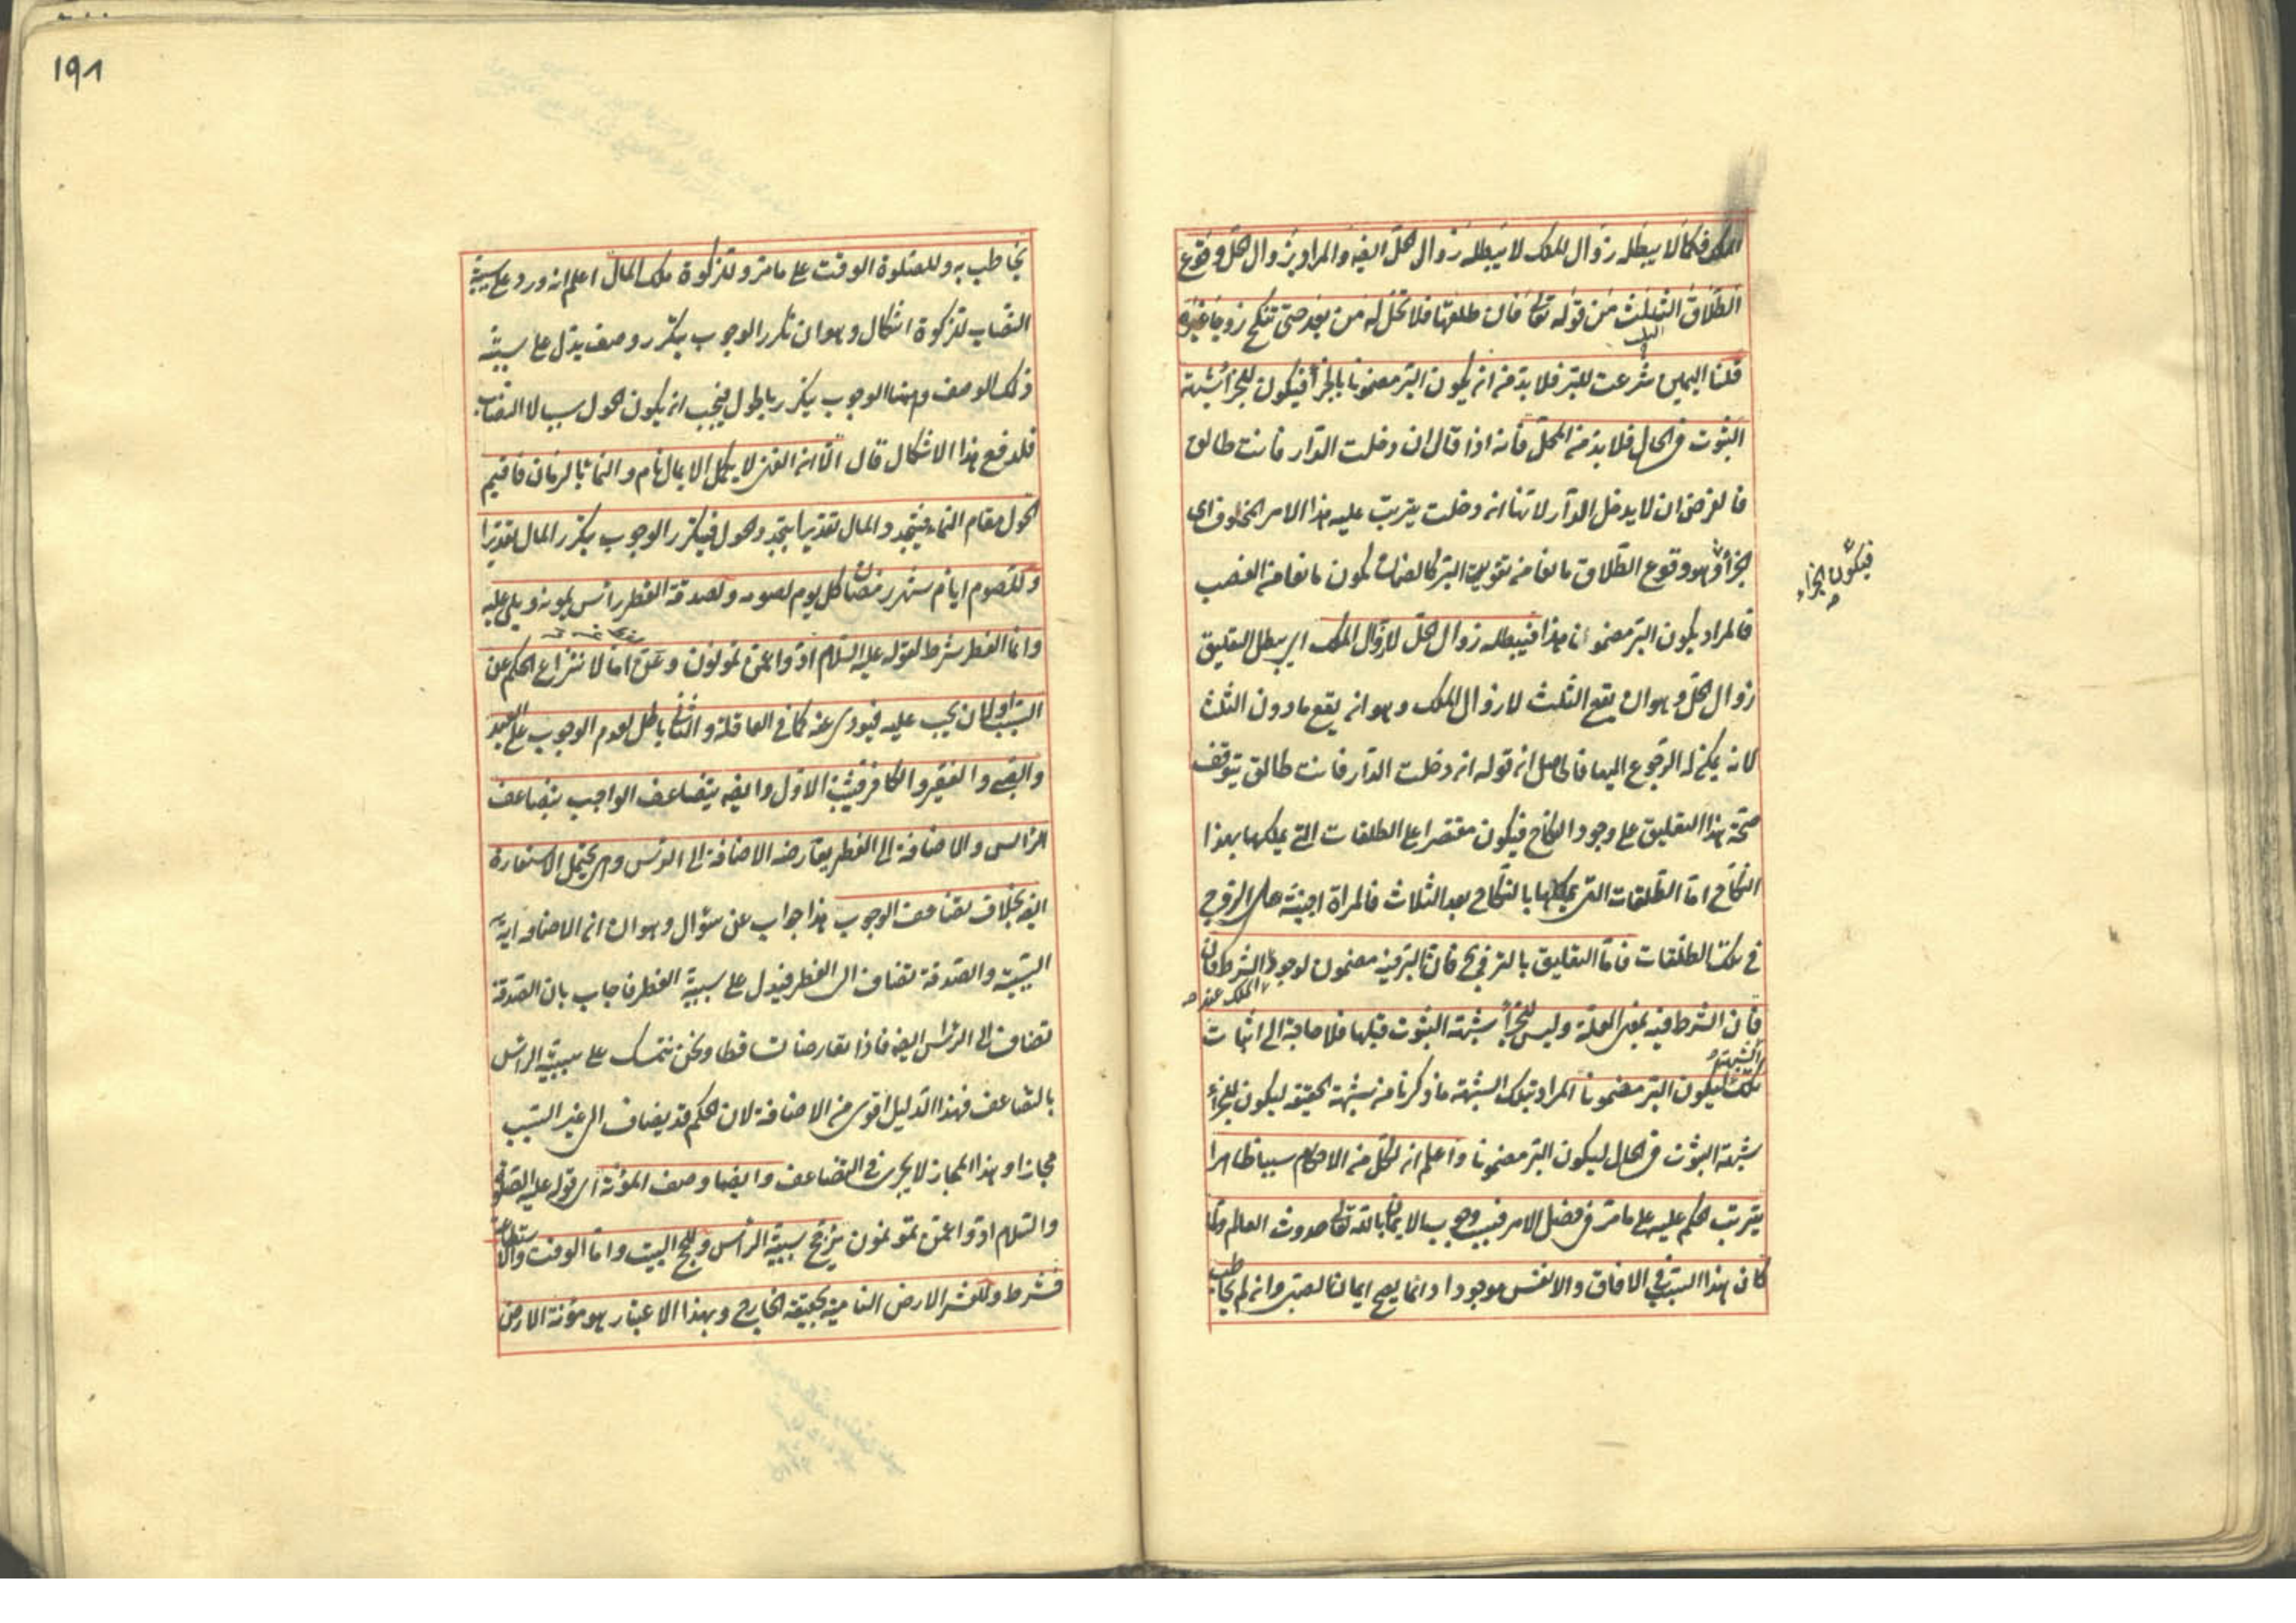 الملك فكما لا يبطله زوال الملك لا يبطله زوال الحل ايضه والمراد بزوال الحل وقوع
الطلاق الثلث من قوله تعالى فان طلقها فلا تحل له من بعد حتى تنكح زوجا غيره
قلنا اليمين شرعت للبر فلا بد من ان يكون البر مضمونا بالجزأ فيكون للجزأ شبهة
الثبوت في الحال فلا بد من المحل فانه اذا قال ان دخلت الدار فانت طالق
فالغرض ان لا يدخل الدار لانها ان دخلت يترتب عليه هذا الامر المخوف اى
الجزأ وهو وقوع الطلاق مانعا من تفويت البر كالضمان يكون مانعا من الغصب
فيكون الجزاء
فالمراد بكون البر مضمونا هذا فيبطله زوال الحل لا زوال الملك اى يبطل التعليق
زوال الحل وهو ان يقع الثلث لا زوال الملك وهو ان يقع ما دون الثلث
لانه يمكن له الرجوع اليها فالحاصل ان قوله ان دخلت الدار فانت طالق يتوقف
صحة هذا التعليق على وجود النكاح فيكون مقتصرا على الطلقات التى يملكها بهذا
النكاح اما الطلقات التى يملكها بالنكاح بعد الثلاث فالمراة اجنبية عن الزوج
في تلك الطلقات فاما التعليق بالتزوج فان البر فيه مضمون لوجود الملك عند الشرط
فان الشرط فيه بمعنى العلة وليس للجزأ شبهة الثبوت قبلها فلا حاجة الى اثبات
تلك الشبهة ليكون البر مضمونا المراد بتلك الشبهة ما ذكرنا من شبهة الحقيقة ليكون للجزأ
شبهة الثبوت في الحال ليكون البر مضمونا واعلم ان لكل من الاحكام سببا ظاهرا
يترتب الحكم عليه على ما مر في فصل الامر فسبب وجوب الايمان بالله تعالى حدوث العالم ولما
كان هذا السبب في الافاق والانفس موجودا دائما يصح ايمان الصبى وان لم يخاطب
١٩٨
يخاطب به وللصلوة الوقت على ما مر وللزكوة ملك المال اعلم انه ورد على سببية
النصاب للزكوة اشكال وهو ان تكرر الوجوب بتكرر وصف يدل على سببية
ذلك الوصف وهنا الوجوب يتكرر بالحول فيجب ان يكون الحول سببا لا النصاب
فلدفع هذا الاشكال قال الا ان الغنى لا يكمل الا بمال نام والنماء بالزمان فاقيم
الحول مقام النماء فيتجدد المال تقديرا بتجدد الحول فيتكرر الوجوب بتكرر المال تقديرا
وللصوم ايام شهر رمضان كل يوم لصومه ولصدقة الفطر رأس يمونه ويلى عليه
وانما الفطر شرط لقوله عليه السلام ادوا عمن تمونون وعن اما لانتزاع الحكم عن
السبب او لان يجب عليه فيودى عنه كما في العاقلة والثانى باطل لعدم الوجوب على العبد
والصبى والفقير والكافر فيثبت الاول وايضه يتضاعف الواجب بتضاعف
الرأس والاضافة الى الفطر يعارضه الاضافة الى الرأس وهى تحتمل الاستعارة
ايضه بخلاف تضاعف الوجوب هذا جواب عن سؤال وهو ان الاضافة آية
السببية والصدقة تضاف الى الفطر فيدل على سببية الفطر فاجاب بان الصدقة
تضاف الى الرأس ايضه فاذا تعارضا تساقطا ونحن نتمسك على سببية الرأس
بالتضاعف فهذا الدليل اقوى من الاضافة لان الحكم قد يضاف الى غير السبب
مجازا وهذا المجاز لا يجرى في التضاعف وايضا وصف المؤنة اى قوله عليه الصلوة
والسلام ادوا عمن تمونون يرجح سببية الرأس وللحج البيت واما الوقت والاستطاعة
فشرط وللعشر الارض النامية بحقيقة الخارج وبهذا الاعتبار هو مؤنة الارض